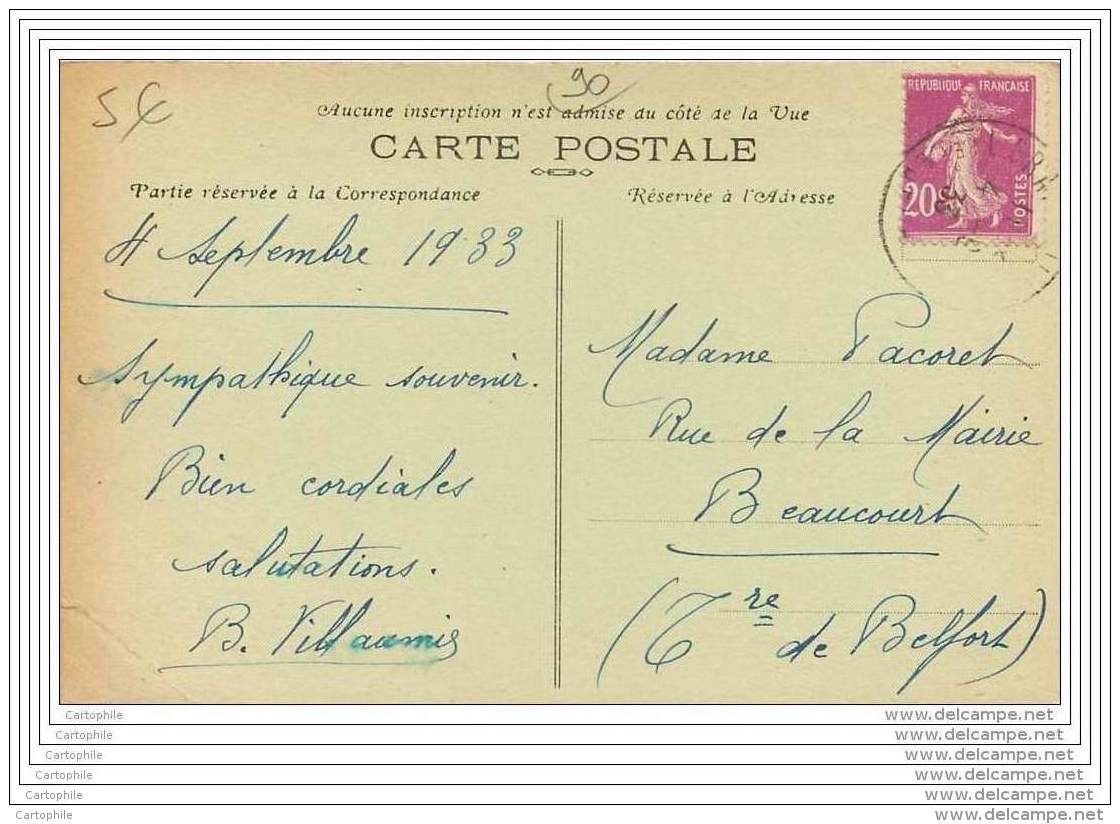 5€
90
Aucune inscription n'est admise du côté de la Vue
CARTE POSTALE
Partie réservée à la Correspondance
Réservée à l'Adresse
REPUBLIQUE FRANÇAISE
20c
POSTES
4 Septembre 1933
Sympathique souvenir.
Bien cordiales
salutations.
B. Villaumié
Madame Pacoret
Rue de la Mairie
Beaucourt
(Tre de Belfort)
Cartophile www.delcampe.net
Cartophile www.delcampe.net
Cartophile www.delcampe.net
Cartophile www.delcampe.net
Cartophile www.delcampe.net
Cartophile www.delcampe.net